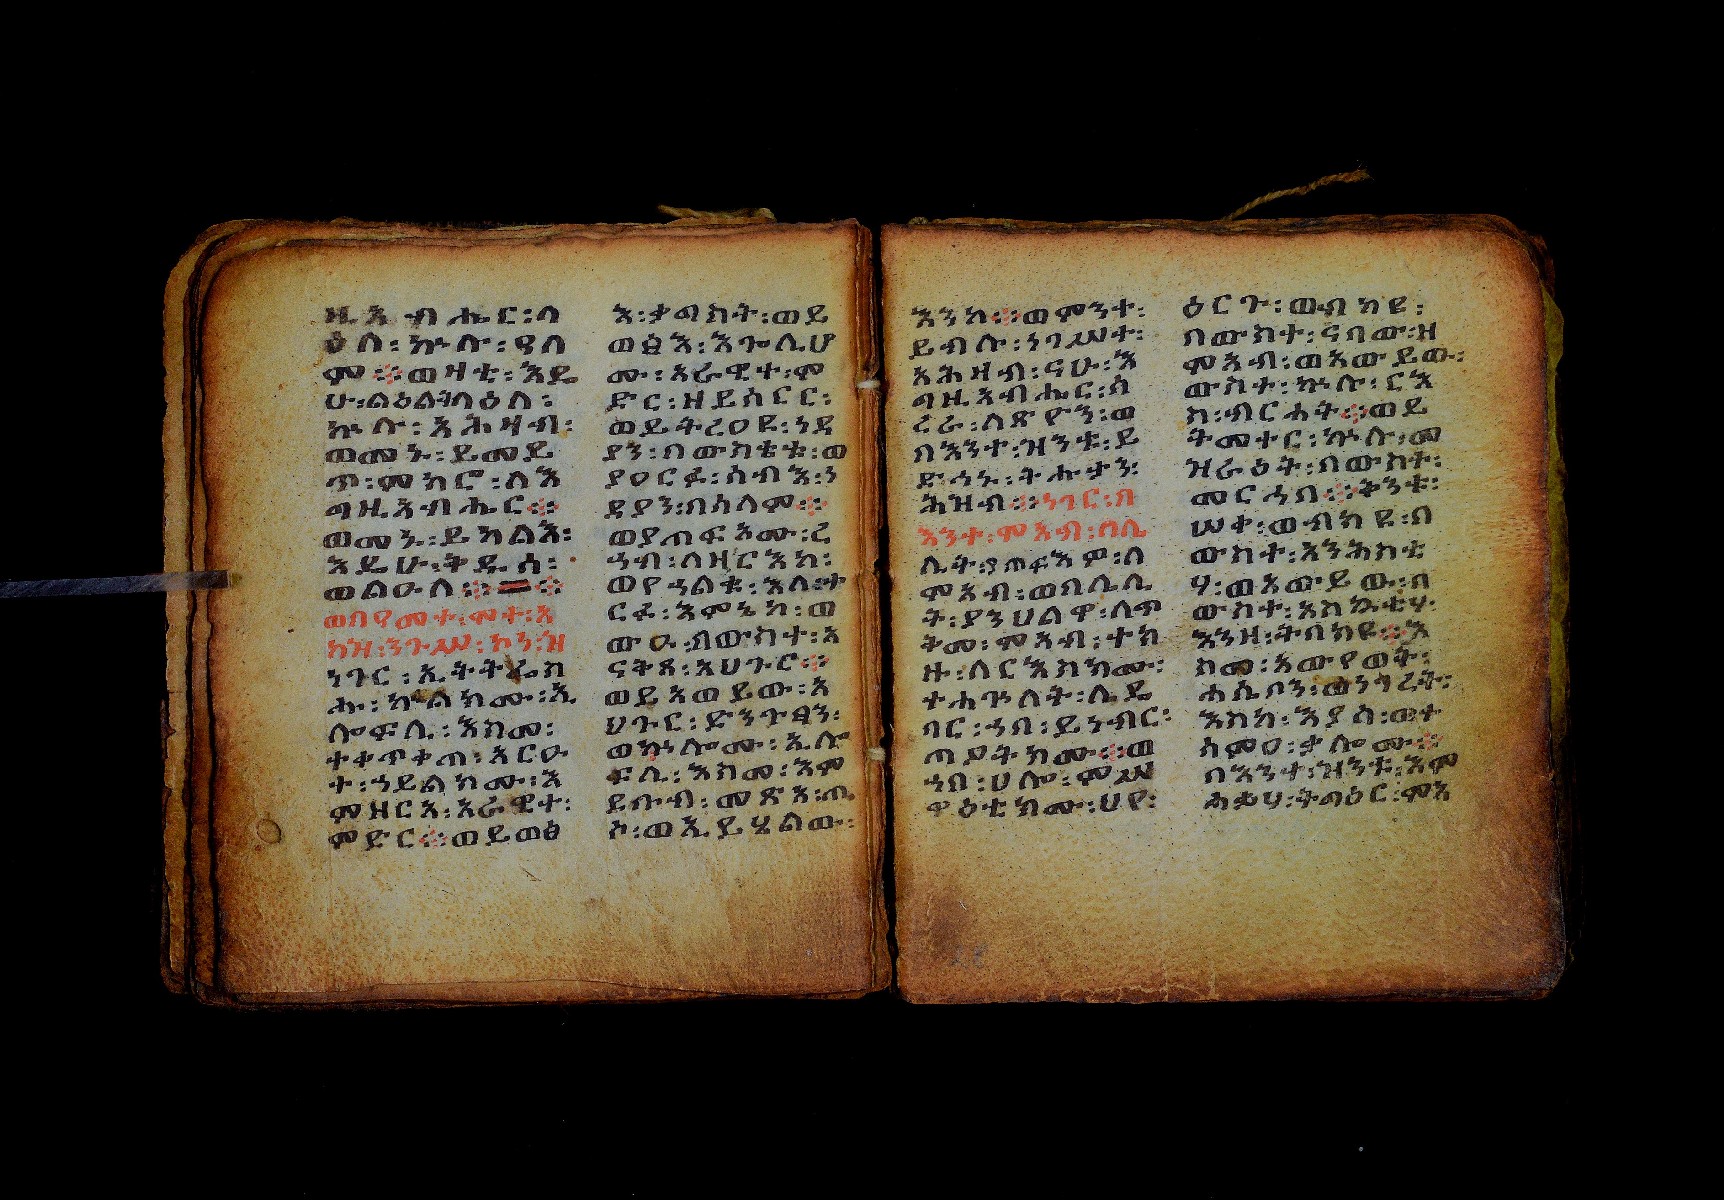 ዚአብሔር፡ላ
ዕለ፡ኵሉ፡ዓለ
ም፨ወዛቲ፡እዴ
ሁ፡ልዕልትላዕለ፡
ኵሉ፡አሕዛብ፡
ወመኑ፡ይመይ
ጥ፡ምክሮ፡ለእ
ግዚአብሔር፨
ወመኑ፡ይክልእ፡
እዴሁ፡ቅዱሰ፡
ወልዑለ፨=፨
ወበዓመተ፡ሞተ፡አ
ካዝ፡ንጉሥ፡ኮነ፡ዝ
ነገር፡ኢትትፌስ
ሑ፡ኵልክሙ፡ኢ
ሎፍሊ፡እስመ፡
ተቀጥቀጠ፡አርዑ
ተ፡ኀይልክሙ፡እ
ምዘርአ፡አራዊተ፡
ምድር፨ወይወፅ
እ፡ቃግስት፡ወይ
ወፅእ፡እጐሊሆ
ሙ፡አራዊተ፡ም
ድር፡ዘይሰርር፡
ወይትረዐዩ፡ነዳ
ያን፡በውስቴቱ፡ወ
ያዐርፉ፡ሰብእ፡ነ
ዳያን፡በሰላም፨
ወያጠፍኦሙ፡ረ
ኀብ፡ለዘርእከ፡
ወየኀልቁ፡እለ፡ተ
ርፉ፡እምኔከ፡ወ
ውዑ፡በውስተ፡አ
ናቅጸ፡አህጉር፨
ወይአወይው፡አ
ህጉር፡ድንጉፃን፡
ወኵሎሙ፡ኢሎ
ፍሊ፡እስመ፡እም
ይቡብ፡መጽአ፡ጢ
ስ፡ወኢይሄልው፡
እንከ፨ወምንተ፡
ይብሉ፡ነገሥተ፡
አሕዛብ፡ናሁ፡እ
ግዚአብሔር፡ሰ
ረራ፡ለጽዮን፡ወ
በእንተ፡ዝንቱ፡ይ
ድኅኑ፡ትሑታን፡
ሕዝብ፨ነገር፡በ
እንተ፡ሞአብ፡በሌ
ሊት፡ያጠፍእዎ፡ለ
ሞአብ፡ወበሌሊ
ት፡ያንህልዋ፡ለጥ
ቅመ፡ሞአብ፡ተክ
ዙ፡ለርእስክሙ፡
ተሐጕለት፡ሌዴ
ባር፡ኀበ፡ይነብር፡
ጣዖትክሙ፨ወ
ኀበ፡ሀሎ፡ምሥ
ዋዕቲክሙ፡ህየ፡
ዕርጉ፡ወብክዩ፡
በውስተ፡ናባው፡ዘ
ሞአብ፡ወአውይው፡
ውስተ፡ኵሉ፡ርእ
ስ፡ብርሐት፨ወይ
ትመተር፡ኵሉ፡መ
ዝራዕት፡በውስተ፡
መርሓባ፨ቅንቱ፡
ሠቀ፡ወብክዩ፡በ
ውስተ፡አንሕስቲ
ሃ፡ወአውይው፡በ
ውስተ፡አስኳቲሃ፡
እንዘ፡ትበክዩ፨እ
ስመ፡አውየወት፡
ሐሴቦን፡ወነገረት፡
እስከ፡እያሰ፡ወተ
ሰምዐ፡ቃሎሙ፨
በእንተ፡ዝንቱ፡እም
ሓቌሃ፡ትግዕር፡ሞአ